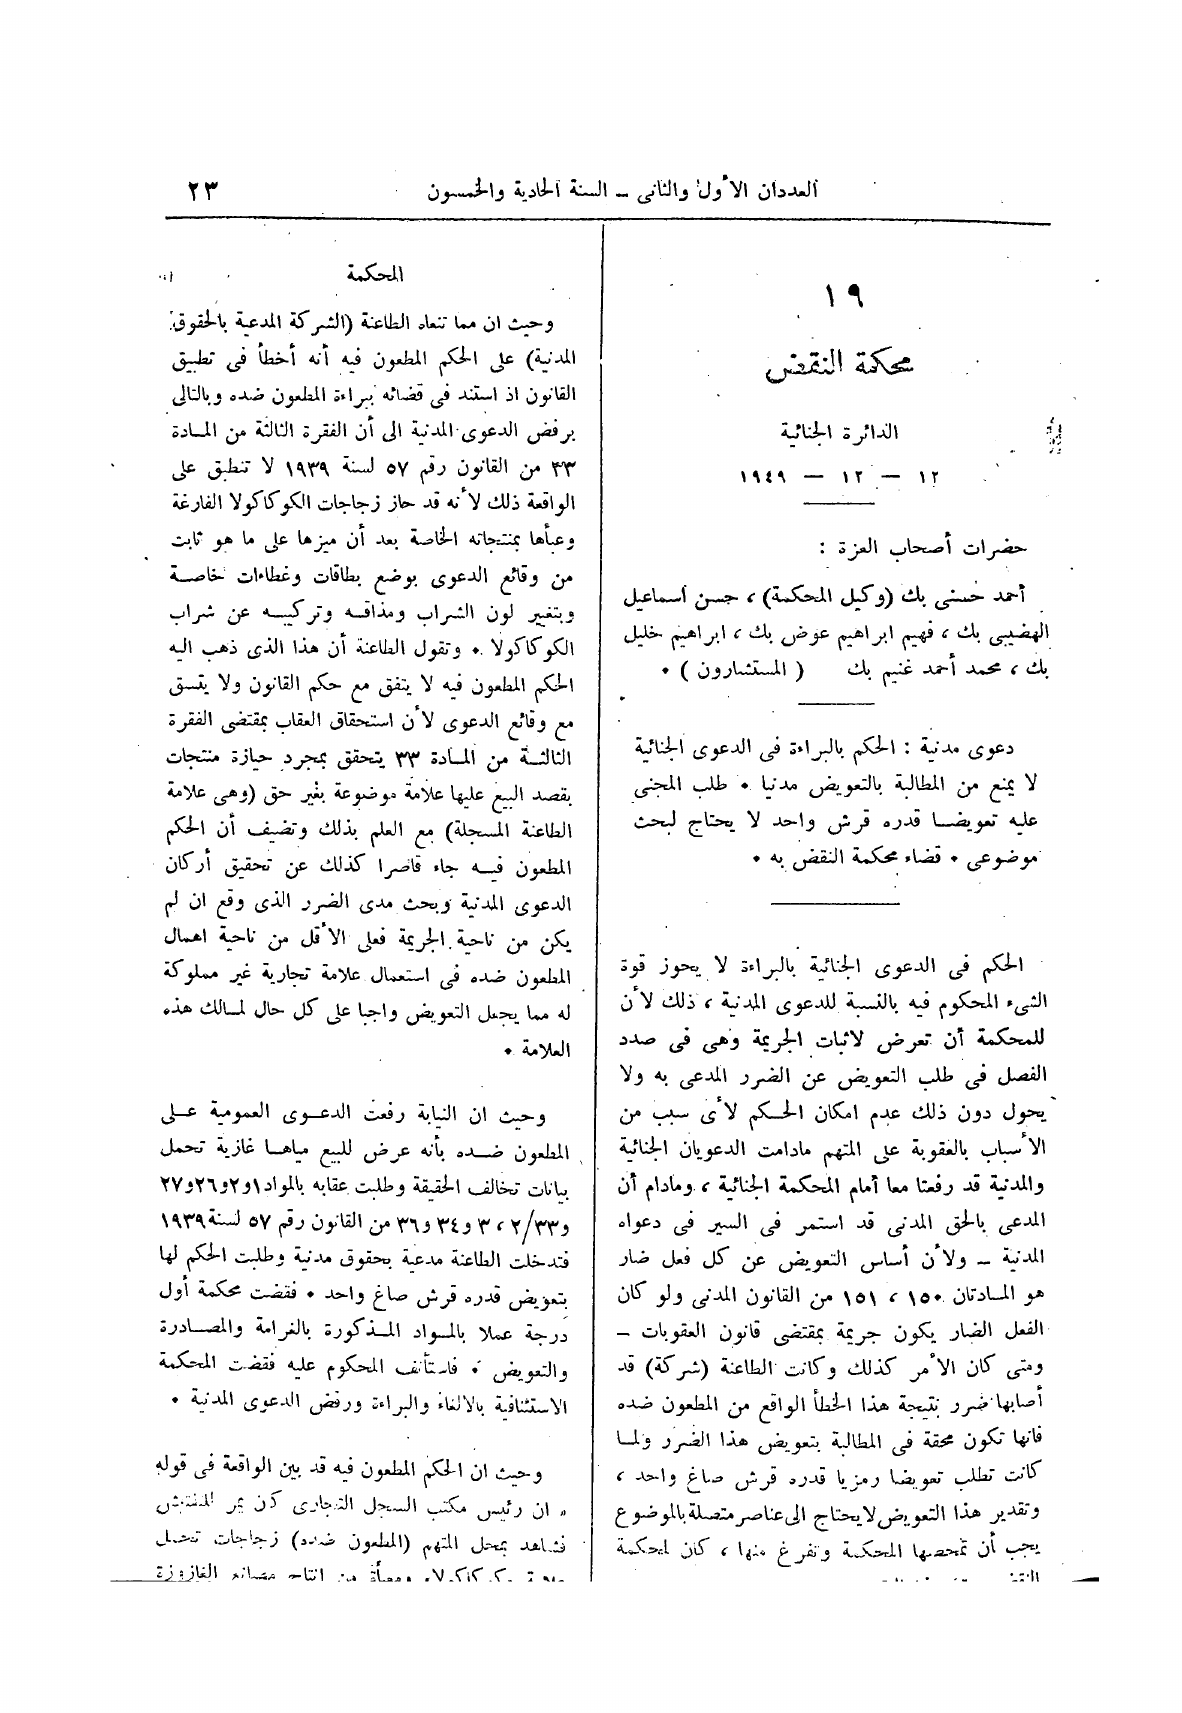 العددان الأول والثانى – السنة الحادية والخمسون
٢٣
١٩
محكمة النقض
الدائرة الجنائية
١٢ – ١٢ – ١٩٤٩
حضرات أصحاب العزة :
أحمد حسنى بك (وكيل المحكمة) ، حسن اسماعيل
الهضيبى بك ، فهيم ابراهيم عوض بك ، ابراهيم خليل
بك ، محمد أحمد غنيم بك ( المستشارون ) •
دعوى مدنية : الحكم بالبراءة فى الدعوى الجنائية
لا يمنع من المطالبة بالتعويض مدنيا • طلب المجنى
عليه تعويضا قدره قرش واحد لا يحتاج لبحث
موضوعى • قضاء محكمة النقض به •
الحكم فى الدعوى الجنائية بالبراءة لا يحوز قوة
الشىء المحكوم فيه بالنسبة للدعوى المدنية ، ذلك لأن
للمحكمة أن تعرض لاثبات الجريمة وهى فى صدد
الفصل فى طلب التعويض عن الضرر المدعى به ولا
يحول دون ذلك عدم امكان الحكم لأى سبب من
الأسباب بالعقوبة على المتهم مادامت الدعويان الجنائية
والمدنية قد رفعتا معا أمام المحكمة الجنائية ، ومادام أن
المدعى بالحق المدنى قد استمر فى السير فى دعواه
المدنية – ولأن أساس التعويض عن كل فعل ضار
هو المادتان ١٥٠ ، ١٥١ من القانون المدنى ولو كان
الفعل الضار يكون جريمة بمقتضى قانون العقوبات –
ومتى كان الأمر كذلك وكانت الطاعنة (شركة) قد
أصابها ضرر نتيجة هذا الخطأ الواقع من المطعون ضده
فانها تكون محقة فى المطالبة بتعويض هذا الضرر ولما
كانت تطلب تعويضا رمزيا قدره قرش صاغ واحد ،
وتقدير هذا التعويض لا يحتاج الى عناصر متصلة بالموضوع
يجب أن تمحصها المحكمة وتفرغ منها ، كان لمحكمة
المحكمة
وحيث ان مما تنعاه الطاعنة (الشركة المدعية بالحقوق
المدنية) على الحكم المطعون فيه أنه أخطأ فى تطبيق
القانون اذ استند فى قضائه ببراءة المطعون ضده وبالتالى
برفض الدعوى المدنية الى أن الفقرة الثالثة من المادة
٣٣ من القانون رقم ٥٧ لسنة ١٩٣٩ لا تنطبق على
الواقعة ذلك لأنه قد حاز زجاجات الكوكاكولا الفارغة
وعبأها بمنتجاته الخاصة بعد أن ميزها على ما هو ثابت
من وقائع الدعوى بوضع بطاقات وغطاءات خاصة
وبتغير لون الشراب ومذاقه وتركيبه عن شراب
الكوكاكولا • وتقول الطاعنة أن هذا الذى ذهب اليه
الحكم المطعون فيه لا يتفق مع حكم القانون ولا يتسق
مع وقائع الدعوى لأن استحقاق العقاب بمقتضى الفقرة
الثالثة من المادة ٣٣ يتحقق بمجرد حيازة منتجات
بقصد البيع عليها علامة موضوعة بغير حق (وهى علامة
الطاعنة المسجلة) مع العلم بذلك وتضيف أن الحكم
المطعون فيه جاء قاصرا كذلك عن تحقيق أركان
الدعوى المدنية وبحث مدى الضرر الذى وقع ان لم
يكن من ناحية الجريمة فعلى الأقل من ناحية اهمال
المطعون ضده فى استعمال علامة تجارية غير مملوكة
له مما يجعل التعويض واجبا على كل حال لمالك هذه
العلامة •
وحيث ان النيابة رفعت الدعوى العمومية على
المطعون ضده بأنه عرض للبيع مياها غازية تحمل
بيانات تخالف الحقيقة وطلبت عقابه بالمواد ١و٢و٢٦و٢٧
و٢/٣٣ ، ٣ و٣٤ و٣٦ من القانون رقم ٥٧ لسنة ١٩٣٩
فتدخلت الطاعنة مدعية بحقوق مدنية وطلبت الحكم لها
بتعويض قدره قرش صاغ واحد • فقضت محكمة أول
درجة عملا بالمواد المذكورة بالغرامة والمصادرة
والتعويض • فاستأنف المحكوم عليه فقضت المحكمة
الاستئنافية بالالغاء والبراءة ورفض الدعوى المدنية •
وحيث ان الحكم المطعون فيه قد بين الواقعة فى قوله
« ان رئيس مكتب السجل التجارى كان يمر للتفتيش
فشاهد بمحل المتهم (المطعون ضده) زجاجات تحمل
كوكاكولا ومعبأة من انتاج مصانع الغازوزة